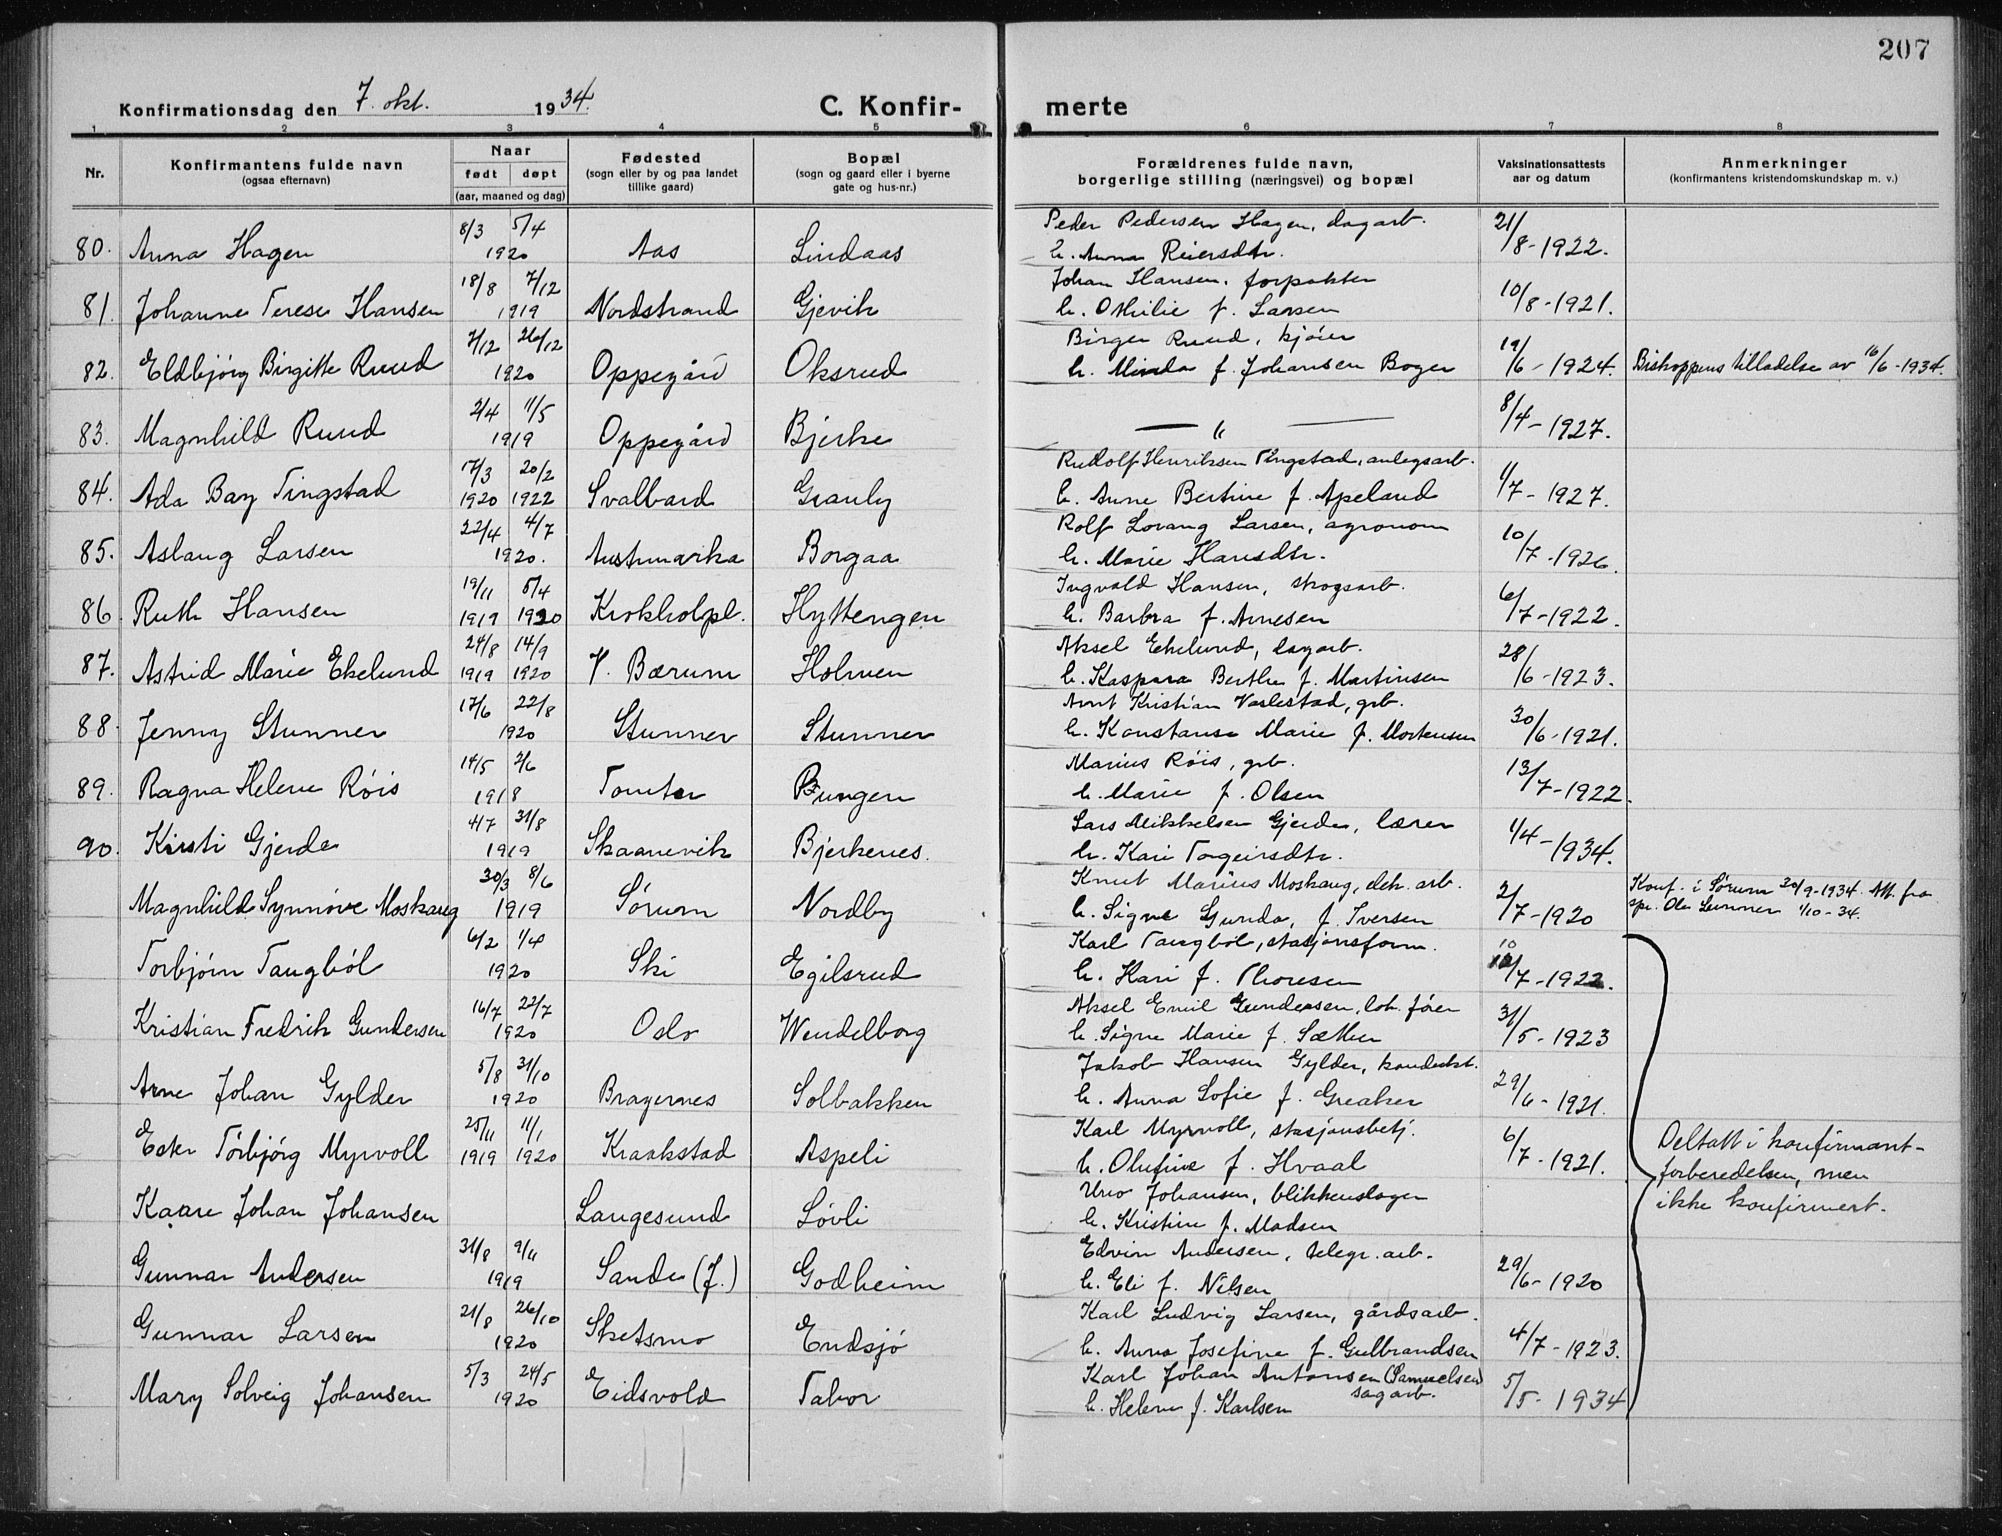 207
Konfirmationsdag den 7. okt. 1934. C. Konfirmerte
1 2 3 4 5 6 7 8
Nr. Konfirmantens fulde navn (ogsaa efternavn) Naar født døpt (aar, maaned og dag) Fødested (sogn eller by og paa landet tillike gaard) Bopæl (sogn og gaard eller i byerne gate og hus-nr.) Forældrenes fulde navn, borgerlige stilling (næringsvei) og bopæl Vaksinationsattests aar og datum Anmerkninger (konfirmantens kristendomskundskap m. v.)
8/3 5/4 Peder Pedersen Hagen, dagarb. 21/
80. Anna Hagen 1920 Aas Lindaas h. Anna Reiersdtr. 8-1922.
18/8 7/12 Johan Hansen, forpakter
81. Johanne Terese Hansen 1919 Nordstrand Gjevik h. Othilie f. Larsen 10/8-1921.
7/12 26/12 Birger Ruud, kjøier
82. Eldbjörg Birgitte Ruud 1920 Oppegård Oksrud h. Minda f. Johansen Boger 19/6-1924. Biskoppens tilladelse av 16/6-1934.
2/4 11/5
83. Magnhild Ruud 1919 Oppegård Bjerke — " — 8/4-1927.
17/3 20/2 Rudolf Henriksen Tingstad, anlegsarb.
84. Ada Bay Tingstad 1920 1922 Svalbard Granly h. Anne Bertine f. Apeland 1/7-1927.
22/4 4/7 Rolf Lovang Larsen, agronom
85. Aslaug Larsen 1920. Austmarka Borgaa h. Marie Hansdtr. 10/7-1926.
19/11 5/4 Ingvald Hansen, skogsarb.
86. Ruth Hansen 1919 1920 Krokholpl. Hyttengen h. Barbra f. Arnesen 6/7-1922.
24/8 14/9 Aksel Ekelund, dagarb.
87. Astrid Marie Ekelund 1919 1920 V. Bærum Holmen h. Kaspara Berthe f. Martinsen 28/6-1923.
17/6 22/8 Arnt Kristian Varlestad, grb.
88. Jenny Stunner 1920 Stunner Stunner h. Konstanse Marie f. Mortensen 30/6-1921.
14/5 2/6 Marius Röis, grb.
89. Ragna Helene Röis 1918 Tomter Bungen h. Marie f. Olsen 13/7-1922.
4/7 31/8 Lars Mikkelsen Gjerde, lærer
90. Kirsti Gjerde 1919 Skaanevik Bjerkenes. h. Kari Torgeirsdtr. 1/4-1934.
30/3 8/6 Knut Marius Moskaug, elek. arb. Konf. i Sørum 30/9-1934. Att. fra
Magnhild Synnöve Moskaug 1919 Sørum Nordby h. Signe Gunda, f. Iversen 2/7-1920 spr. Ole Sunner 1/10-34.
6/2 1/4 Karl Taugböl, stasjonsform.
Torbjörn Taugböl 1920 Ski Egilsrud h. Kari f. Thoresen 10/7-1922.
16/7 22/7 Aksel Emil Gundersen, lok. förer
Kristian Fredrik Gundersen 1920 Oslo Wendelborg h. Signe Marie f. Sæther 31/5-1923
5/8 31/10 Jakob Hansen Gylder, kondukt.
Arne Johan Gylder 1920 Bragernes Solbakken h. Anna Sofie f. Greaker 29/6-1921.
25/11 11/1 Karl Myrvoll, stasjonsbetj.
Ester Torbjörg Myrvoll 1919 1920 Kraakstad Aspeli h. Olufine f. Hvaal 6/7-1921. Deltatt i konfirmant-
forberedelsen, men
Uno Johansen, blikkenslager
Kaare Johan Johansen Langesund Løvli h. Kristine f. Madsen ikke konfirmert.
31/8 9/11 Edvin Andersen, telegr. arb.
Gunnar Andersen 1919 Sande (J.) Godheim h. Eli f. Nilsen 29/6-1920
21/8 26/10 Karl Ludvig Larsen, gårdsarb.
Gunnar Larsen 1920 Sketsmo Endsjø h. Anna Josefine f. Gulbrandsen 4/7-1923.
5/3 24/5 Karl Johan Antonsen (Samuelsen)
sagarb.
Mary Solveig Johansen 1920 Eidsvold Tabor h. Helene f. Karlsen 5/5-1934